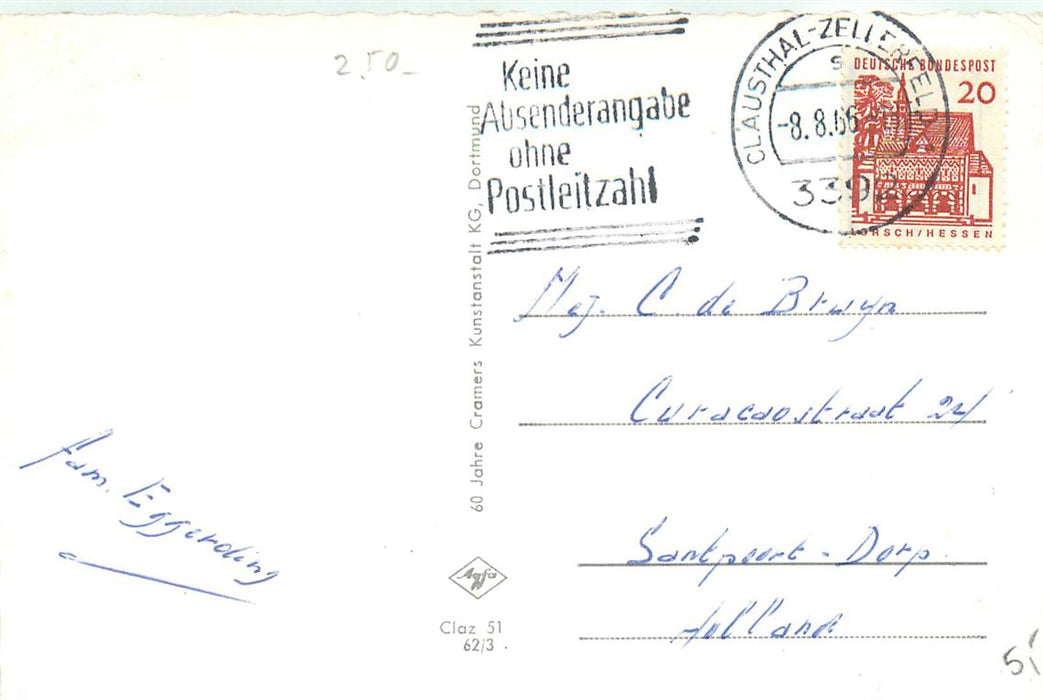 2.50-
Keine
Absenderangabe
ohne
Postleitzahl
CLAUSTHAL-ZELLERFELD
-8.8.66
3392
DEUTSCHE BUNDESPOST
20
LORSCH/HESSEN
60 Jahre Cramers Kunstanstalt KG, Dortmund
Mej. C. de Bruyn
Curacaostraat 24
Santpoort-Dorp.
Holland
fam. Eggerding
Agfa
Claz 51
62/3.
5,